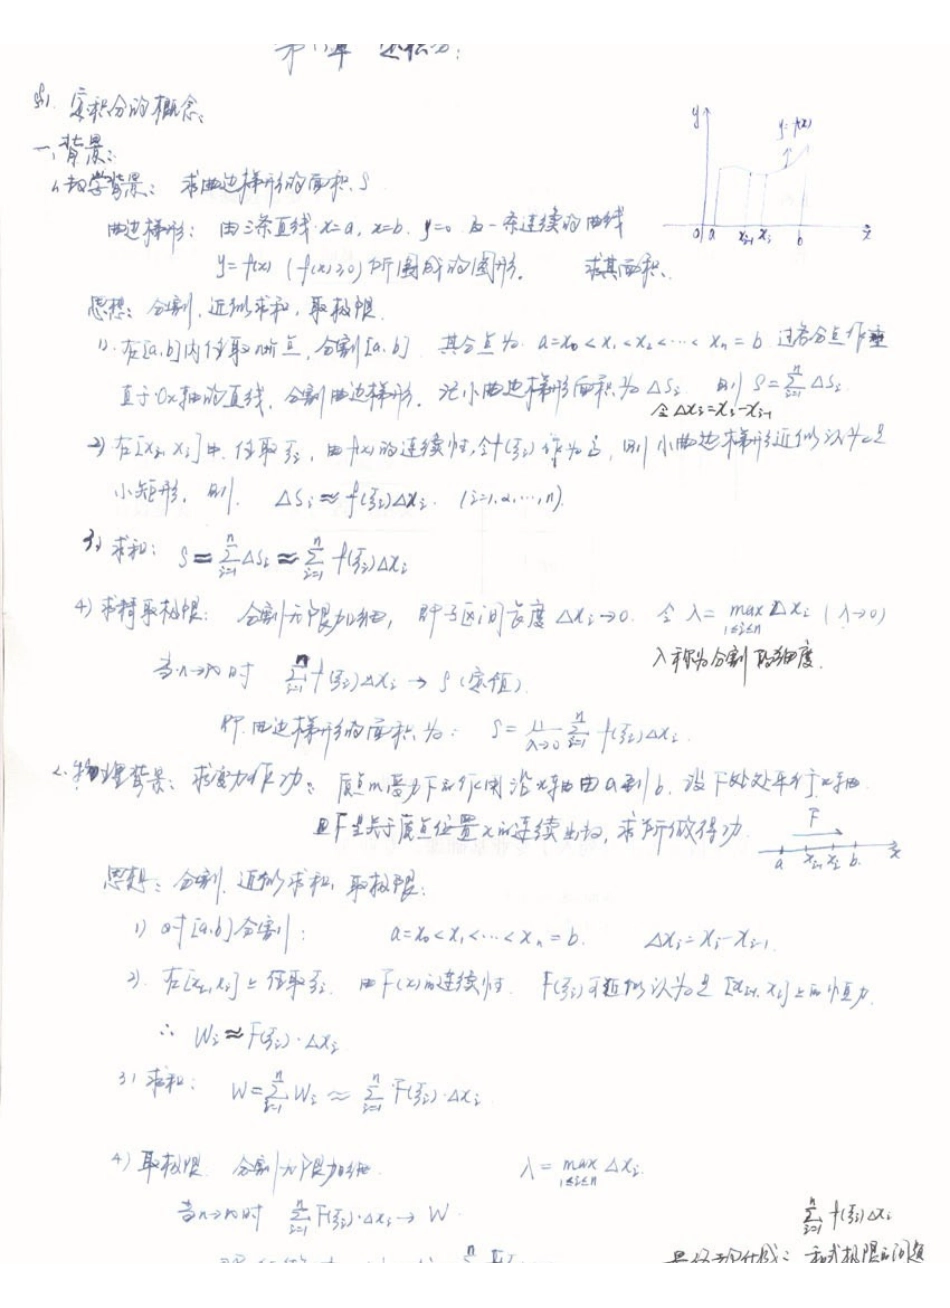 §1. 定积分的概念.
一, 背景:
1. 数学背景: 求曲边梯形的面积 S
曲边梯形: 由三条直线 x=a, x=b, y=0 及一条连续的曲线
y=f(x) (f(x)≥0) 所围成的图形. 求其面积.
y
y=f(x)
0 a xᵢ₋₁ xᵢ b x
思想: 分割, 近似求和, 取极限.
1). 在[a,b]内任取 分点, 分割[a,b] 其分点为 a=x₀<x₁<x₂<⋯<xₙ=b 过各分点作垂
直于Ox轴的直线, 分割曲边梯形. 记小曲边梯形面积为 ΔSᵢ 则 S=∑ᵢ₌₁ⁿ ΔSᵢ
令 Δxᵢ=xᵢ-xᵢ₋₁
2) 在[xᵢ₋₁, xᵢ]中, 任取 ξᵢ, 由f(x)的连续性, 令f(ξᵢ)作为高, 则小曲边梯形近似认为是
小矩形, 则. ΔSᵢ≈f(ξᵢ)Δxᵢ. (i=1,2,⋯,n).
3) 求和: S=∑ᵢ₌₁ⁿ ΔSᵢ≈∑ᵢ₌₁ⁿ f(ξᵢ)Δxᵢ
4) 求精取极限: 分割无限加细, 即子区间长度 Δxᵢ→0. 令 λ= max Δxᵢ (λ→0)
1≤i≤n
λ称为分割的细度.
当n→∞时 ∑ᵢ₌₁ⁿ f(ξᵢ)Δxᵢ → S (定值).
即 曲边梯形的面积为: S= lim ∑ᵢ₌₁ⁿ f(ξᵢ)Δxᵢ
λ→0
2. 物理背景: 求变力作功: 质点m受力F的作用沿x轴由a到b, 设F处处平行于x轴
且F是关于质点位置x的连续 , 求F所做得功.
F
a xᵢ₋₁ xᵢ b x
思想: 分割, 近似求和, 取极限:
1) 对[a,b]分割: a=x₀<x₁<⋯<xₙ=b. Δxᵢ=xᵢ-xᵢ₋₁.
2). 在[xᵢ₋₁,xᵢ]上任取ξᵢ. 由F(x)的连续性. F(ξᵢ)可近似认为是[xᵢ₋₁, xᵢ]上的恒力.
∴ Wᵢ≈F(ξᵢ)·Δxᵢ
3) 求和: W=∑ᵢ₌₁ⁿ Wᵢ ≈ ∑ᵢ₌₁ⁿ F(ξᵢ)·Δxᵢ
4) 取极限. 分割无限加细. λ= max Δxᵢ.
1≤i≤n
当n→∞时 ∑ᵢ₌₁ⁿ F(ξᵢ)·Δxᵢ → W.
∑ᵢ₌₁ⁿ f(ξᵢ)Δxᵢ
和式极限的问题